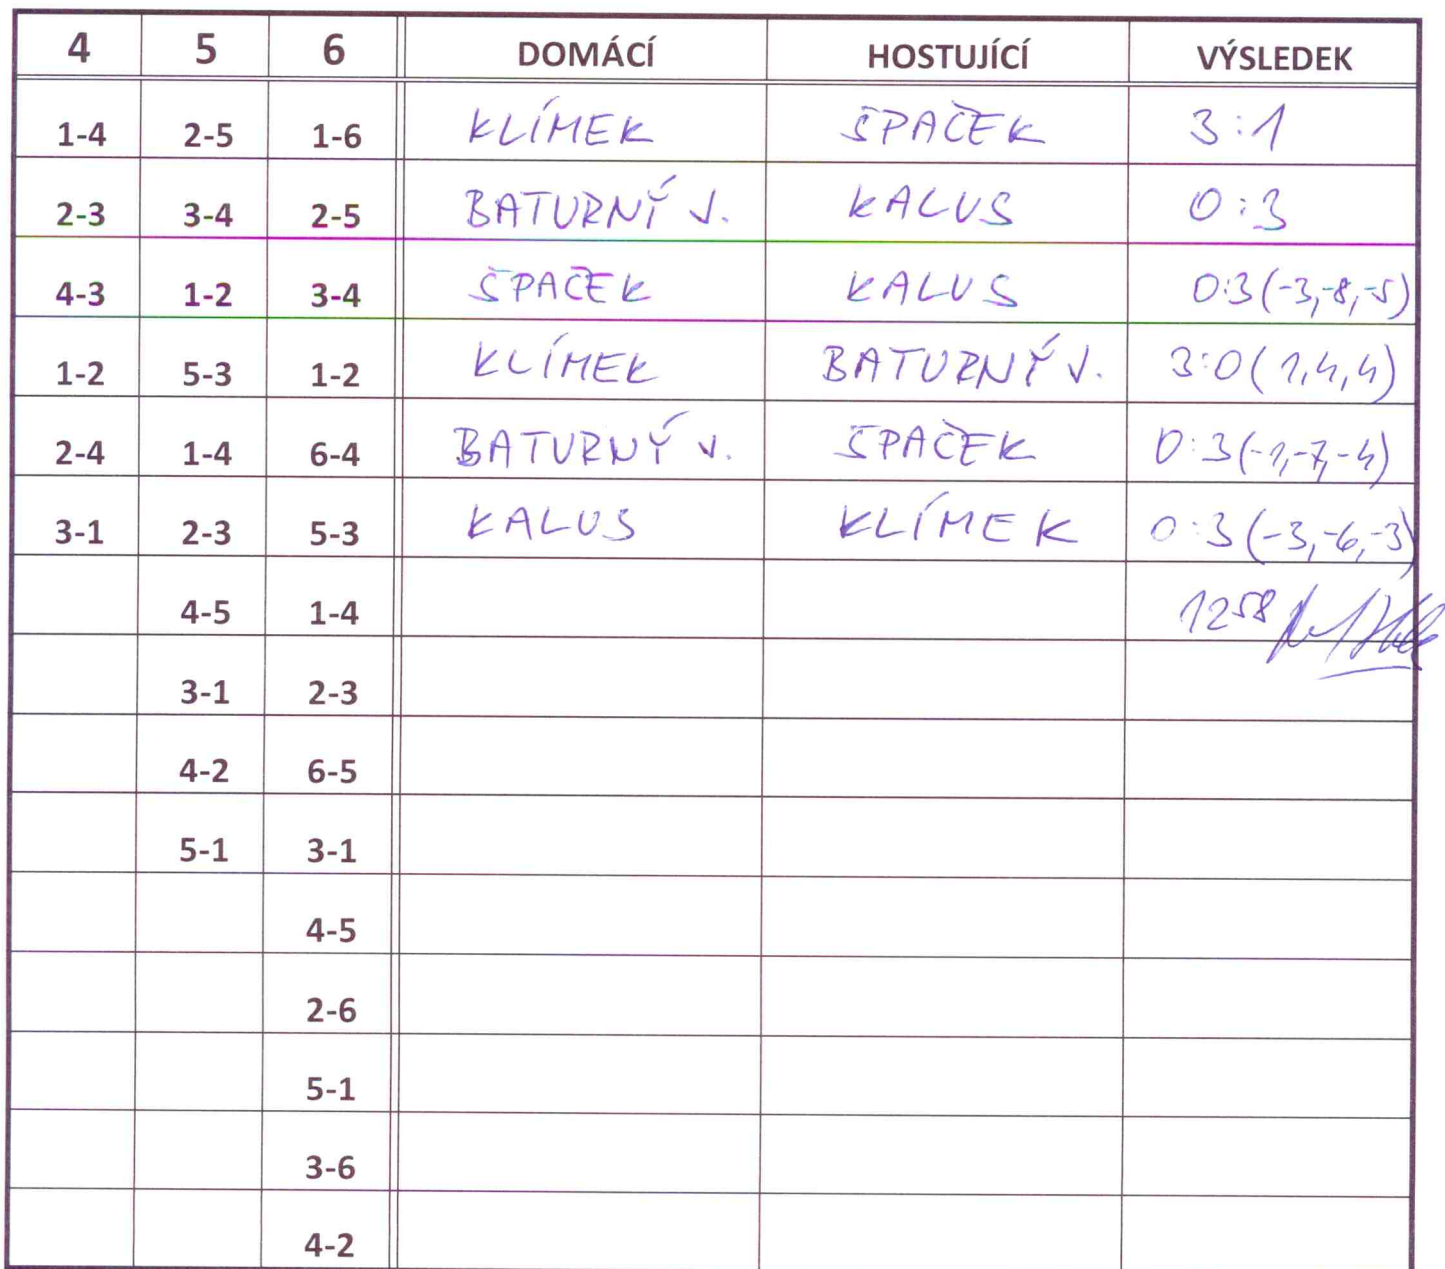 4 5 6 DOMÁCÍ HOSTUJÍCÍ VÝSLEDEK
1-4 2-5 1-6 KLÍMEK ŠPAČEK 3:1
2-3 3-4 2-5 BATURNÝ V. KALUS 0:3
4-3 1-2 3-4 ŠPAČEK KALUS 0:3(-3,-8,-5)
1-2 5-3 1-2 KLÍMEK BATURNÝ V. 3:0(1,4,4)
2-4 1-4 6-4 BATURNÝ V. ŠPAČEK 0:3(-1,-7,-4)
3-1 2-3 5-3 KALUS KLÍMEK 0:3(-3,-6,-3)
4-5 1-4 1258
3-1 2-3
4-2 6-5
5-1 3-1
4-5
2-6
5-1
3-6
4-2